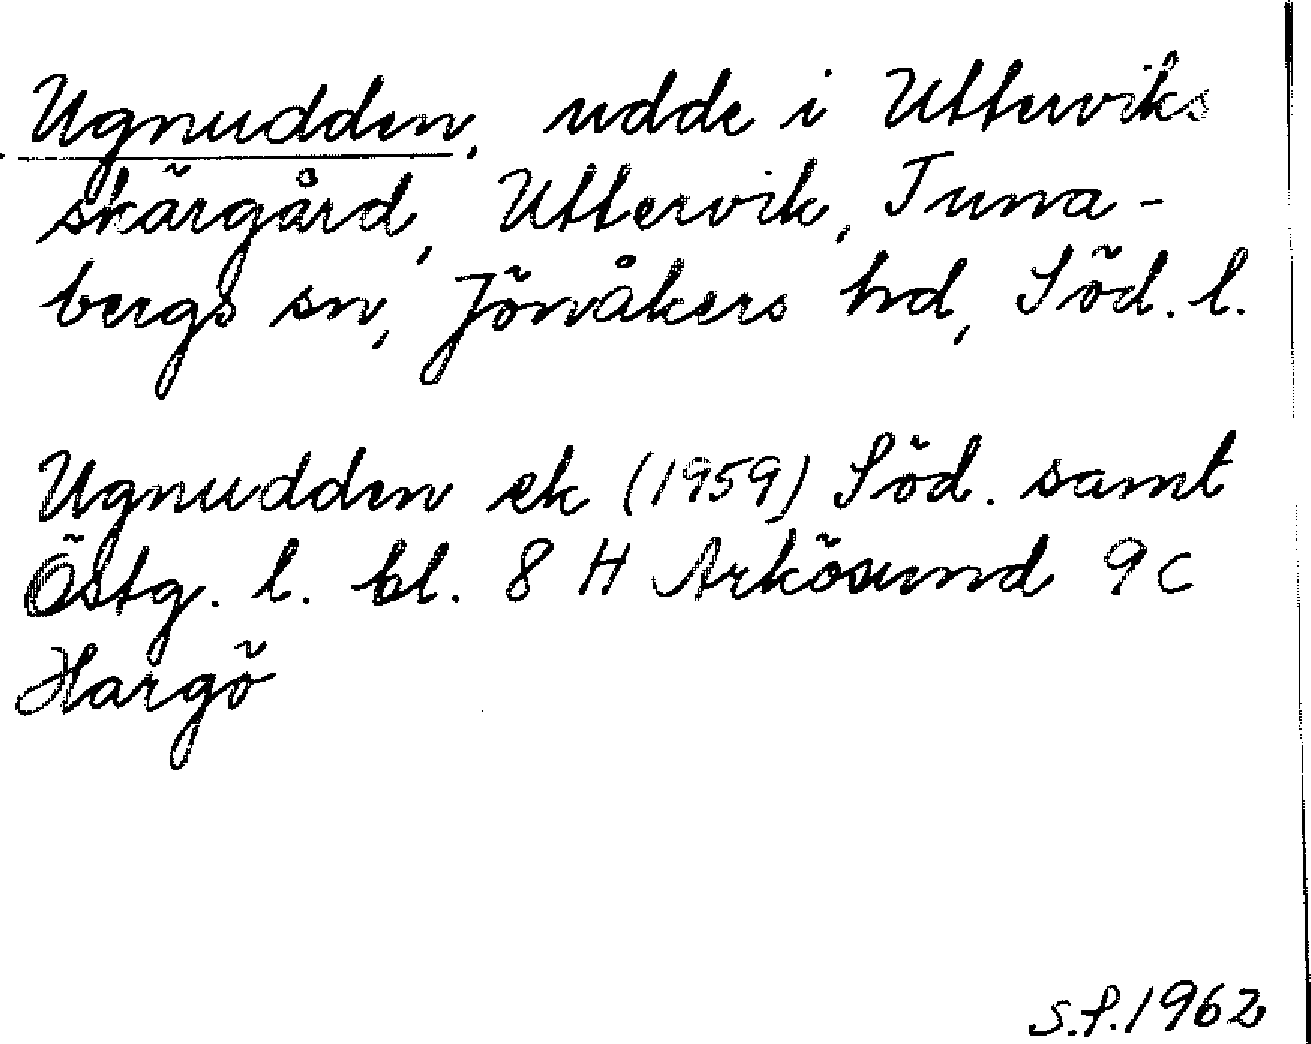 Ugnudden, udde i Utterviks
skärgård, Uttervik, Tuna-
bergs sn, Jönåkers hd, Söd. l.
Ugnudden ek (1959) Söd. samt
Östg. l. bl. 8 H Arkösund 9 c
Hargö
S.S. 1962